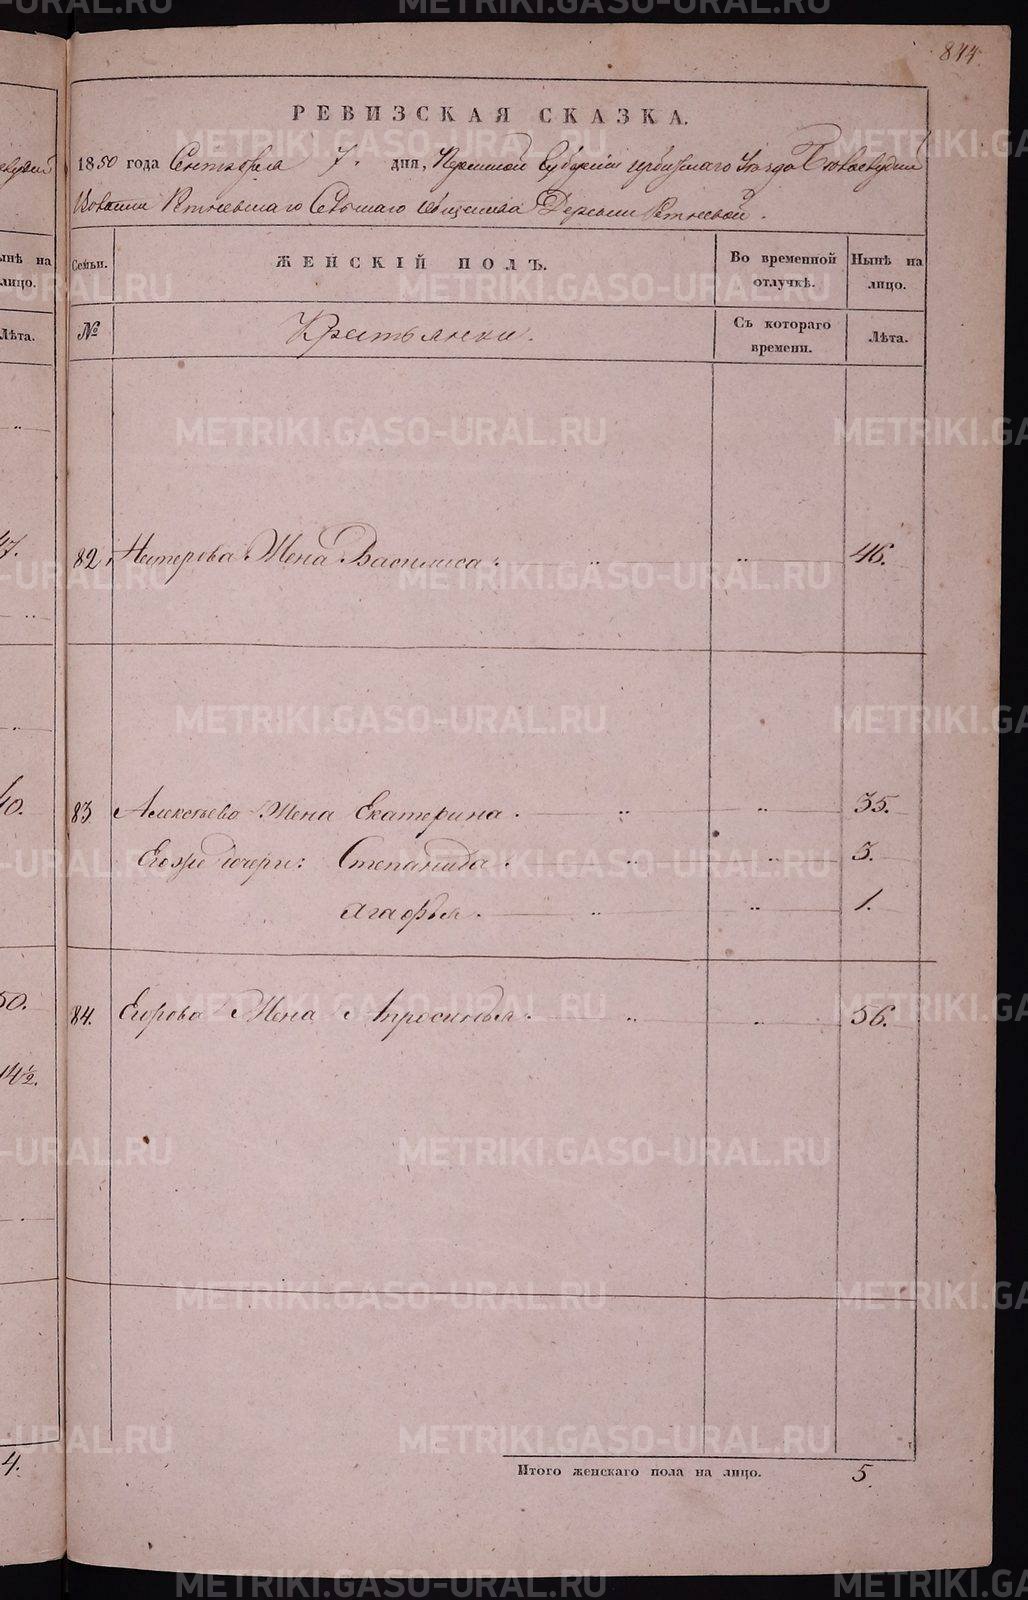 844.
РЕВИЗСКАЯ СКАЗКА.
1850 года Сентября 7. дня, Пермской Губернии Ирбитскаго Уезда
Волости Ретневскаго Сельскаго общества Деревни Ретневой.
Семьи. ЖЕНСКІЙ ПОЛЪ. Во временной отлучкѣ. Нынѣ на лицо.
№ Крестьянки. Съ котораго времени. Лѣта.
82. Нестерова Жена Василиса. 46.
83 Алексѣева Жена Екатерина. 35.
Егоже дочери: Степанида. 3.
Агафья. 1.
84. Егорова Жена Апросинья. 56.
Итого женскаго пола на лицо. 5.
нынѣ на
лицо.
Лѣта.
47.
40.
50.
14½.
4.
METRIKI.GASO-URAL.RU